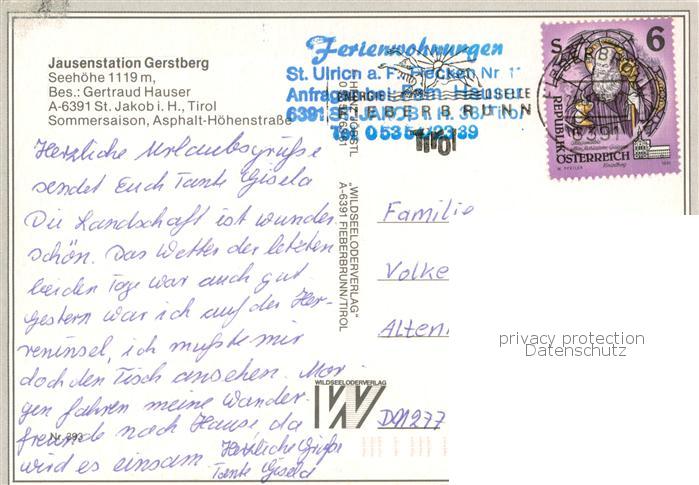 Jausenstation Gerstberg
Seehöhe 1119 m,
Bes.: Gertraud Hauser
A-6391 St. Jakob i. H., Tirol
Sommersaison, Asphalt-Höhenstraße
Ferienwohnungen
St. Ulrich a. P. Flecken Nr. 1
Anfragen bei Fam. Hauser
6391 ST. JAKOB i. H. 38/Tirol
Tel. 05354/
ENERGIEQUELLE
FIEBERBRUNN
Tirol
6
REPUBLIK
ÖSTERREICH
Herzliche Urlaubsgrüße
sendet Euch Tante Gisela
Die Landschaft ist wunder
schön. Das Wetter der letzten
beiden Tage war auch gut
gestern war ich auf der Her-
reninsel, ich mußte mir
doch den Tisch ansehen. Mor
gen fahren meine Wander-
freunde nach Hause, da
wird es einsam Herzliche Grüße
Tante Gisela
Nr. 393
"WILDSEELODERVERLAG"
A-6391 FIEBERBRUNN/TIROL
WILDSEELODERVERLAG
W
Familie
Volke
Alten
privacy protection
Datenschutz